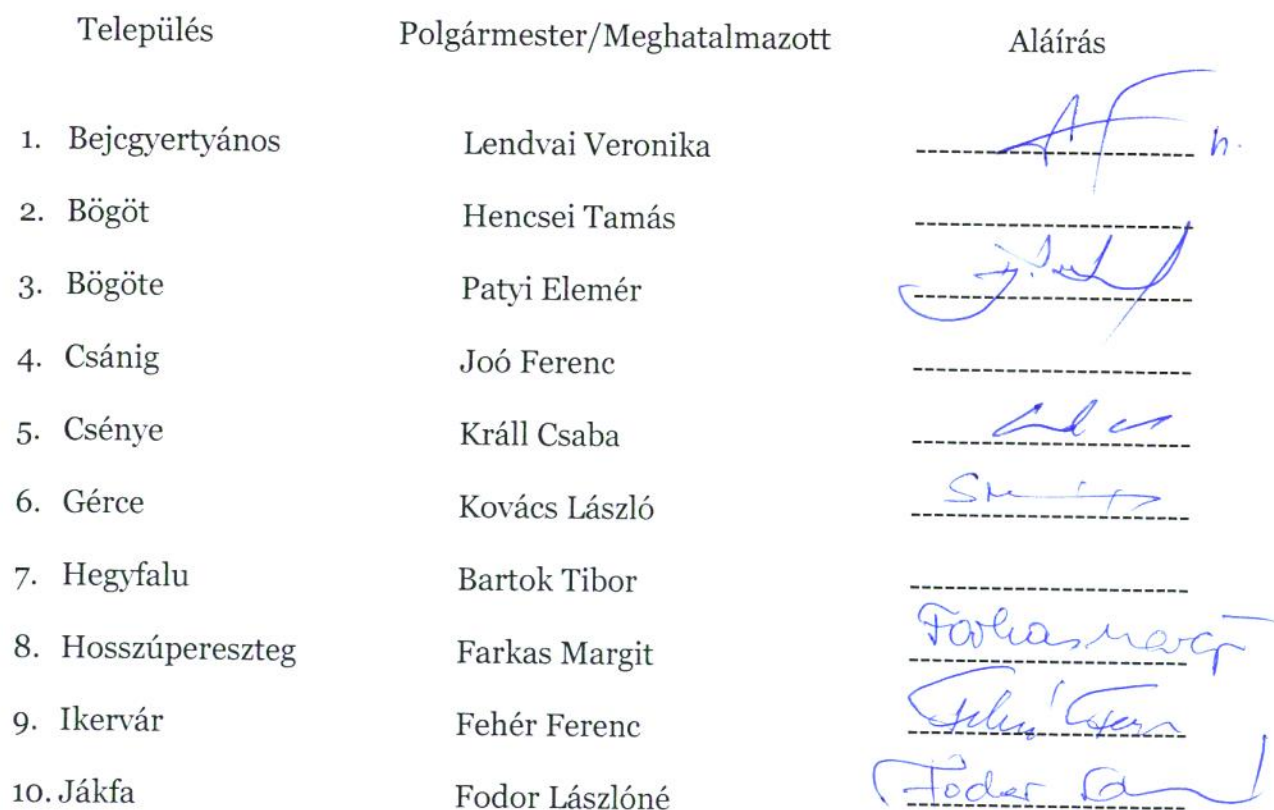 Település Polgármester/Meghatalmazott Aláírás
1. Bejcgyertyános Lendvai Veronika h.
2. Bögöt Hencsei Tamás
3. Bögöte Patyi Elemér
4. Csánig Joó Ferenc
5. Csénye Králl Csaba
6. Gérce Kovács László
7. Hegyfalu Bartok Tibor
8. Hosszúpereszteg Farkas Margit Farkas Margit
9. Ikervár Fehér Ferenc Fehér Ferenc
10. Jákfa Fodor Lászlóné Fodor